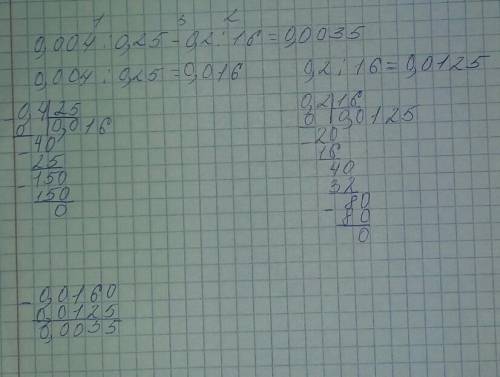 1 3 2
0,004 : 0,25 - 0,2 : 16 = 0,0035
0,004 : 0,25 = 0,016
0,2 : 16 = 0,0125
- 0,4 25
0 0,016
- 40
25
- 150
150
0
0,2 16
0 0,0125
- 20
16
40
32
- 80
80
0
- 0,0160
0,0125
0,0035